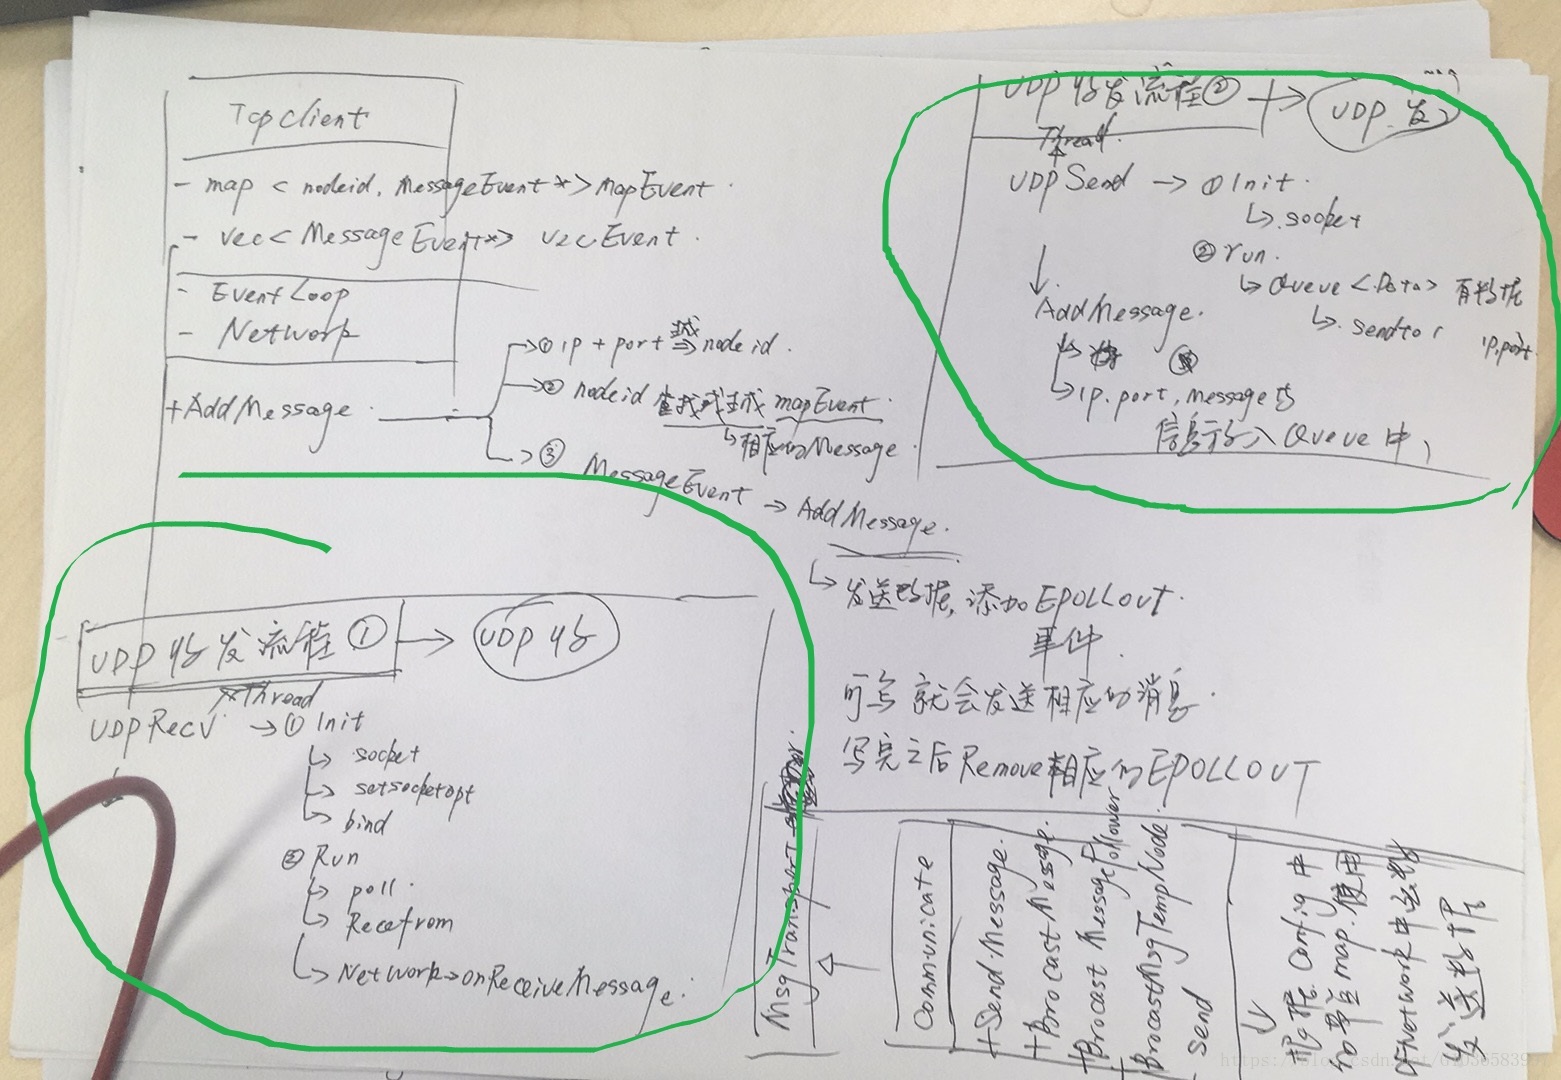 Tcpclient
- map < nodeid, MessageEvent *> MapEvent
- vec< MessageEvent*> vecEvent
- EventLoop
- Network
+AddMessage
→① ip + port ⇒ nodeid
→② nodeid 查找或生成 mapEvent
↳相应的Message
→③ MessageEvent → AddMessage
↳ 发送数据, 添加EPOLLOUT
事件
可写 就会发送相应的消息
写完之后 Remove相应的EPOLLOUT
UDP 收发流程② → UDP 发
Thread
UDPSend → ① Init
↳ socket
② run
↳ Queue <Data> 有数据
↳ sendto (
ip,port
↓
AddMessage
↳ ip, port, message 的
信息放入 Queue 中
UDP 收发流程① → UDP 收
Thread
UDPRecv → ① Init
↳ socket
↳ setsocketopt
↳ bind
② Run
↳ poll
↳ Recefrom
↳ Network→onReceiveMessage
MsgTransport
Communicate
+SendMessage
+Brocast Message
+Brocast MessageFollower
+BrocastMsgTempNode
- send
根据 Config 中
map 使用
Network中
发送数据
https://blog.csdn.net/